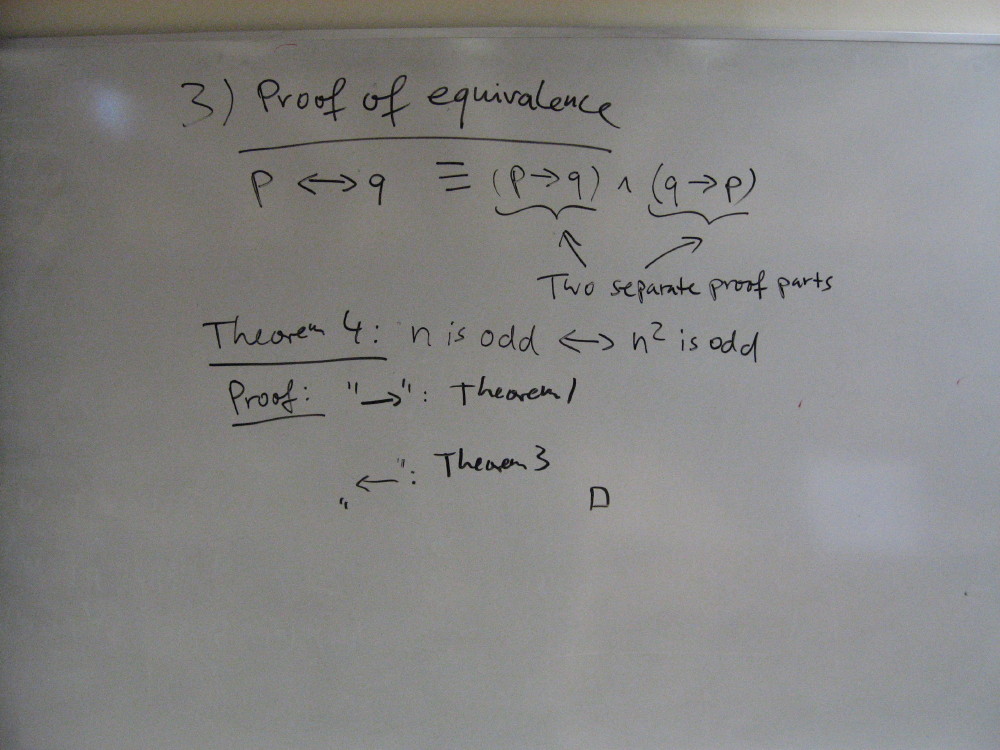 3) Proof of equivalence
p ↔ q ≡ (p→q) ∧ (q→p)
Two separate proof parts
Theorem 4: n is odd ↔ n² is odd
Proof: "→": Theorem 1
"←": Theorem 3
□